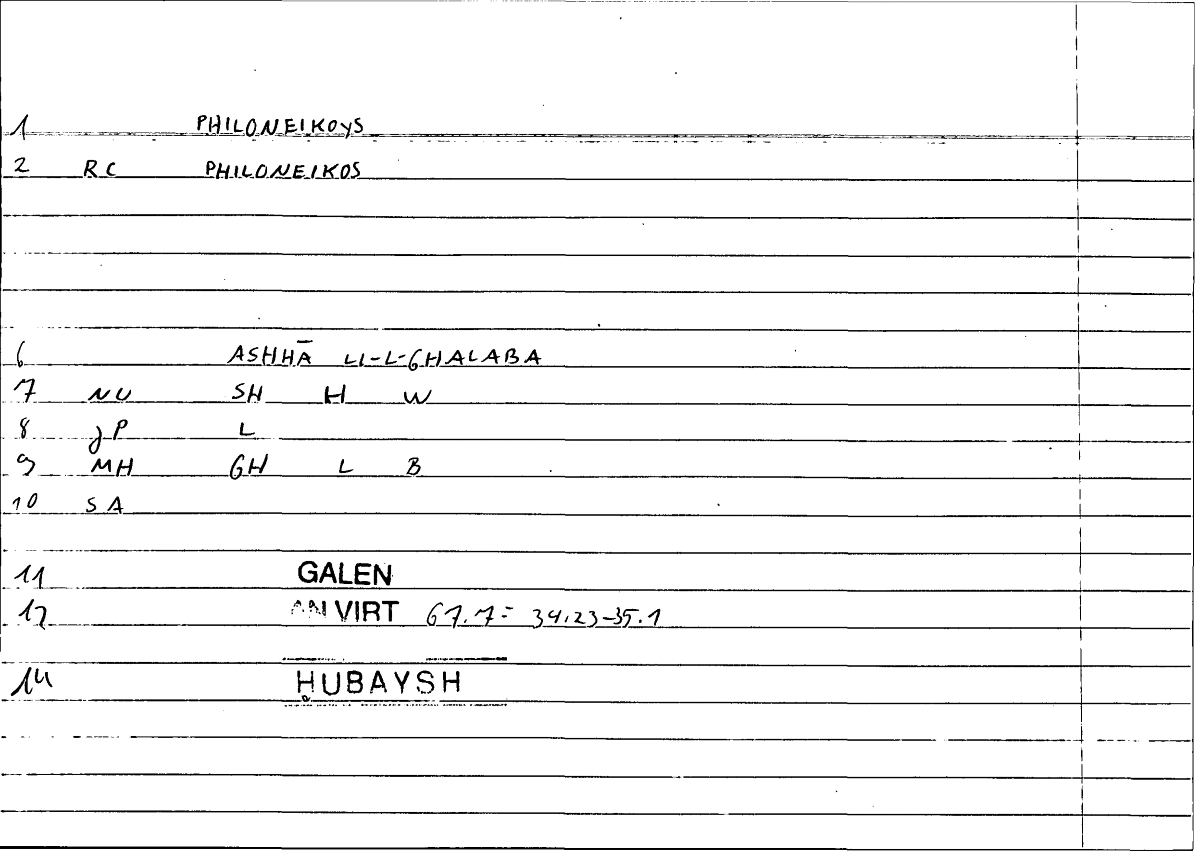 1 PHILONEIKOYS
2 RC PHILONEIKOS
6 ASHHĀ LI-L-GHALABA
7 NU SH H W
8 JP L
9 MH GH L B
10 SA
11 GALEN
12 AN VIRT 67.7= 34.23-35.1
14 ḤUBAYSH